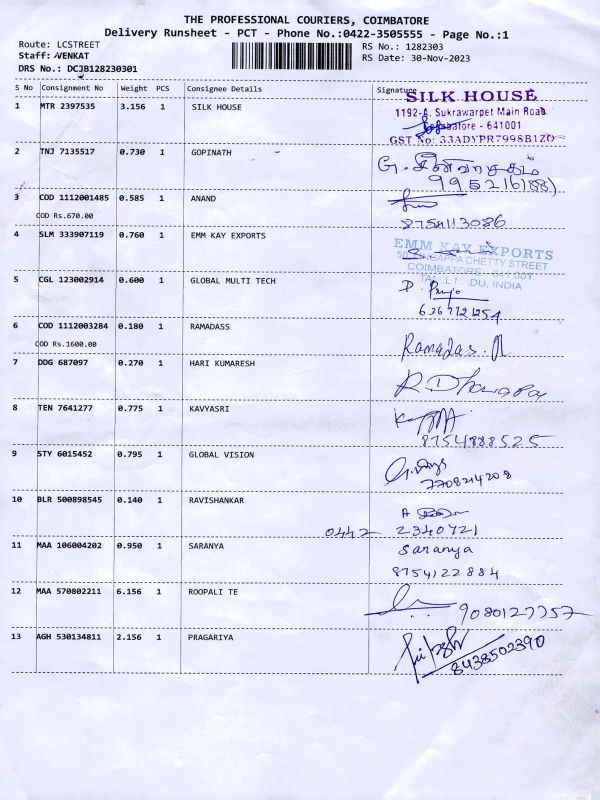 THE PROFESSIONAL COURIERS, COIMBATORE
Delivery Runsheet - PCT - Phone No.:0422-3505555 - Page No.:1
Route: LCSTREET
RS No.: 1282303
Staff: VENKAT
RS Date: 30-Nov-2023
DRS No.: DCJB128230301
S No Consignment No Weight PCS Consignee Details Signature
1 MTR 2397535 3.156 1 SILK HOUSE
SILK HOUSE
1192-A, Sukrawarpet Main Road
Coimbatore - 641001
GST No: 33ADYPR7998B1ZO
2 TNJ 7135517 0.730 1 GOPINATH
3 COD 1112001485 0.585 1 ANAND
COD Rs.670.00
8754113086
4 SLM 333907119 0.760 1 EMM KAY EXPORTS
EMM KAY EXPORTS
CHETTY STREET
COIMBATORE - 641 001
INDIA
5 CGL 123002914 0.600 1 GLOBAL MULTI TECH
6 COD 1112003284 0.180 1 RAMADASS
COD Rs.1600.00
Ramadas
7 DDG 687097 0.270 1 HARI KUMARESH
8 TEN 7641277 0.775 1 KAVYASRI
8754888525
9 STY 6015452 0.795 1 GLOBAL VISION
7708214208
10 BLR 500898545 0.140 1 RAVISHANKAR
0442 2340721
11 MAA 106004202 0.950 1 SARANYA
Saranya
8754122884
12 MAA 570802211 6.156 1 ROOPALI TE
9080127757
13 AGH 530134811 2.156 1 PRAGARIYA
8438502390